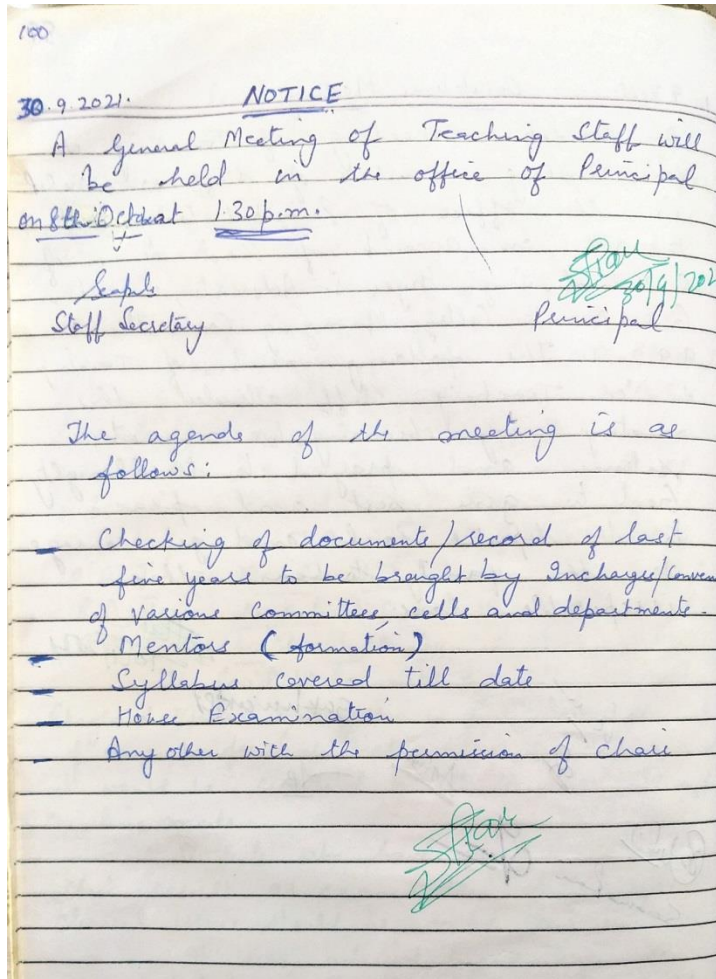 100
30.9.2021. NOTICE
A General Meeting of Teaching Staff will
be held in the office of Principal
on 8th Oct. at 1.30 p.m.
30/9/202
Staff Secretary Principal
The agenda of the meeting is as
follows:
- Checking of documents/record of last
five years to be brought by Incharges/Conven
of various committees, cells and departments.
- Mentors (formation)
- Syllabus covered till date
- House Examination
- Any other with the permission of chair